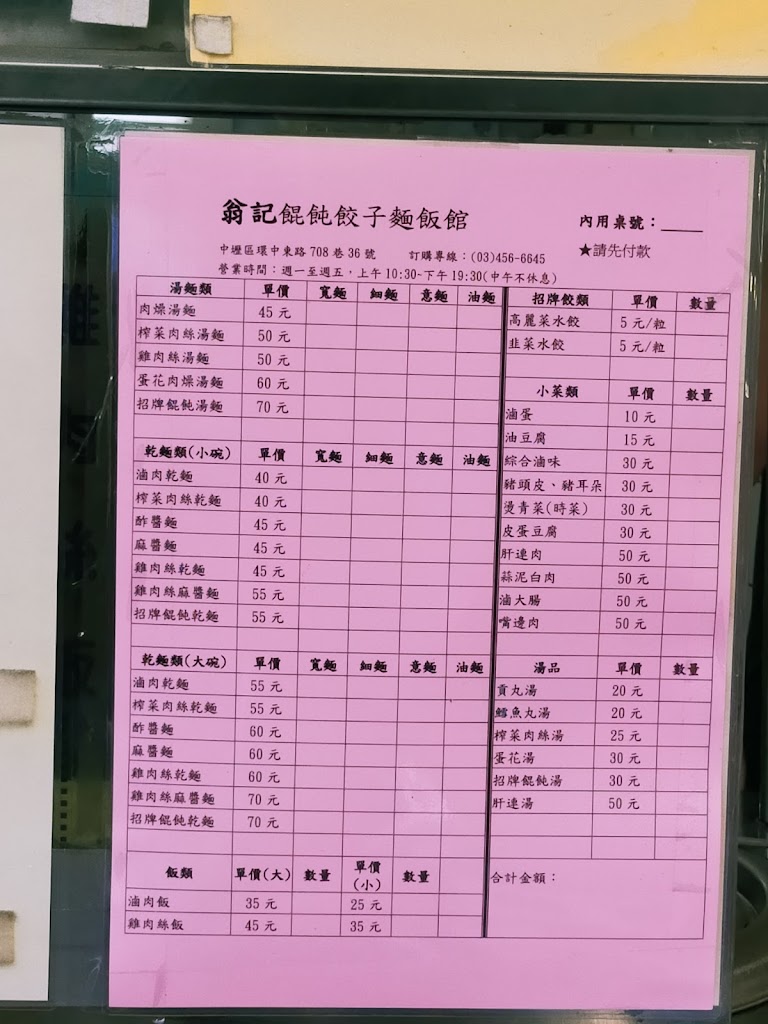 翁記餛飩餃子麵飯館
內用桌號：____
中壢區環中東路 708 巷 36 號 訂購專線：(03)456-6645
★請先付款
營業時間：週一至週五，上午 10:30-下午 19:30(中午不休息)
湯麵類 單價 寬麵 細麵 意麵 油麵
肉燥湯麵 45 元
榨菜肉絲湯麵 50 元
雞肉絲湯麵 50 元
蛋花肉燥湯麵 60 元
招牌餛飩湯麵 70 元
乾麵類(小碗) 單價 寬麵 細麵 意麵 油麵
滷肉乾麵 40 元
榨菜肉絲乾麵 40 元
酢醬麵 45 元
麻醬麵 45 元
雞肉絲乾麵 45 元
雞肉絲麻醬麵 55 元
招牌餛飩乾麵 55 元
乾麵類(大碗) 單價 寬麵 細麵 意麵 油麵
滷肉乾麵 55 元
榨菜肉絲乾麵 55 元
酢醬麵 60 元
麻醬麵 60 元
雞肉絲乾麵 60 元
雞肉絲麻醬麵 70 元
招牌餛飩乾麵 70 元
飯類 單價(大) 數量 單價(小) 數量
滷肉飯 35 元 25 元
雞肉絲飯 45 元 35 元
招牌餃類 單價 數量
高麗菜水餃 5 元/粒
韭菜水餃 5 元/粒
小菜類 單價 數量
滷蛋 10 元
油豆腐 15 元
綜合滷味 30 元
豬頭皮、豬耳朵 30 元
燙青菜(時菜) 30 元
皮蛋豆腐 30 元
肝連肉 50 元
蒜泥白肉 50 元
滷大腸 50 元
嘴邊肉 50 元
湯品 單價 數量
貢丸湯 20 元
鱈魚丸湯 20 元
榨菜肉絲湯 25 元
蛋花湯 30 元
招牌餛飩湯 30 元
肝連湯 50 元
合計金額：